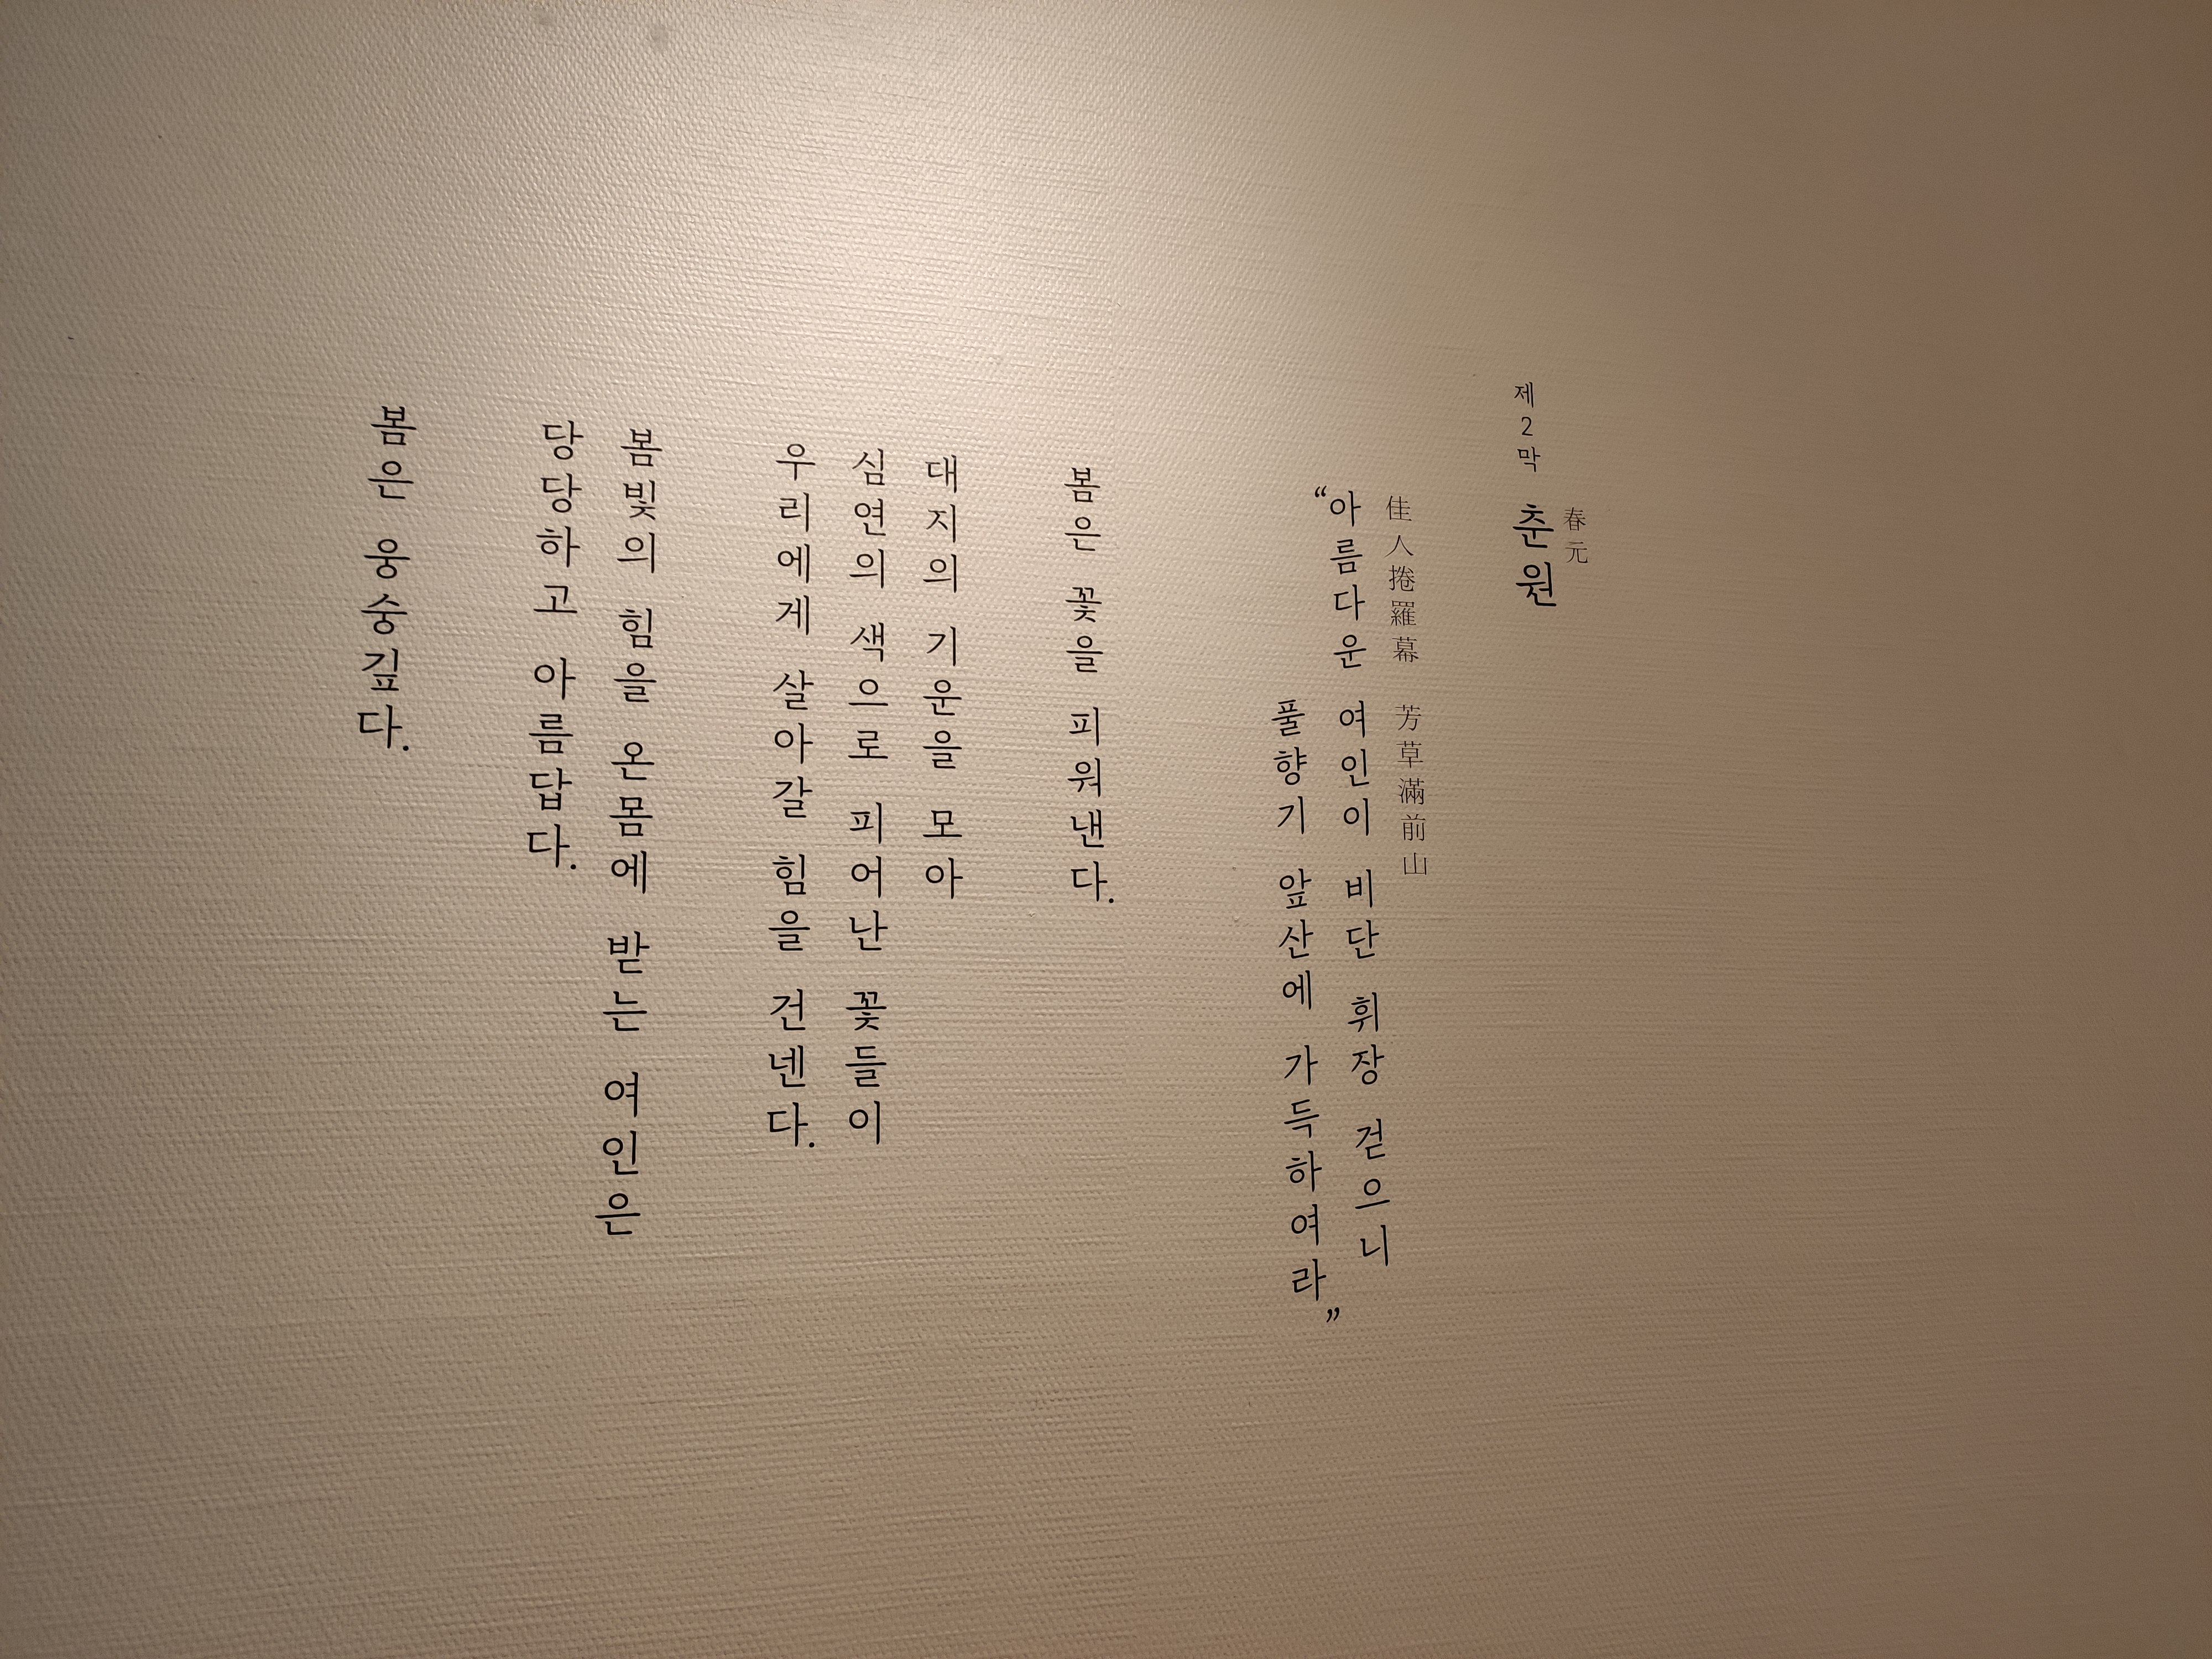 제2막 춘원
春元
佳人捲羅幕 芳草滿前山
“아름다운 여인이 비단 휘장 걷으니
풀향기 앞산에 가득하여라”
봄은 꽃을 피워낸다.
대지의 기운을 모아
심연의 색으로 피어난 꽃들이
우리에게 살아갈 힘을 건넨다.
봄빛의 힘을 온몸에 받는 여인은
당당하고 아름답다.
봄은 웅숭깊다.